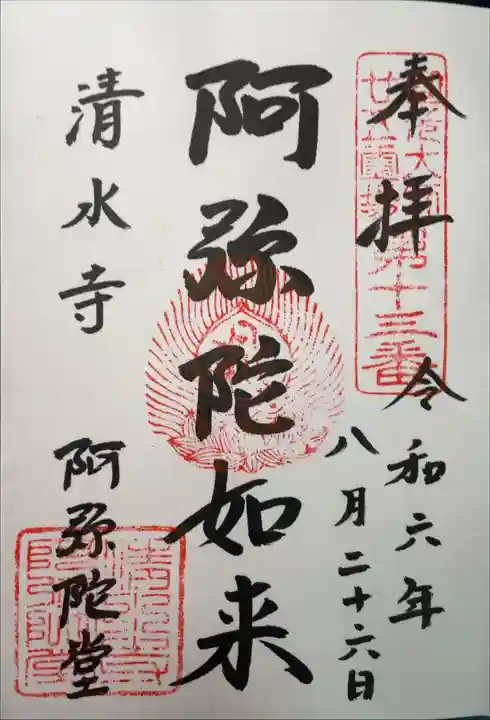 奉拝
令和六年
八月二十六日
阿弥陀如来
清水寺
阿弥陀堂
第十三番